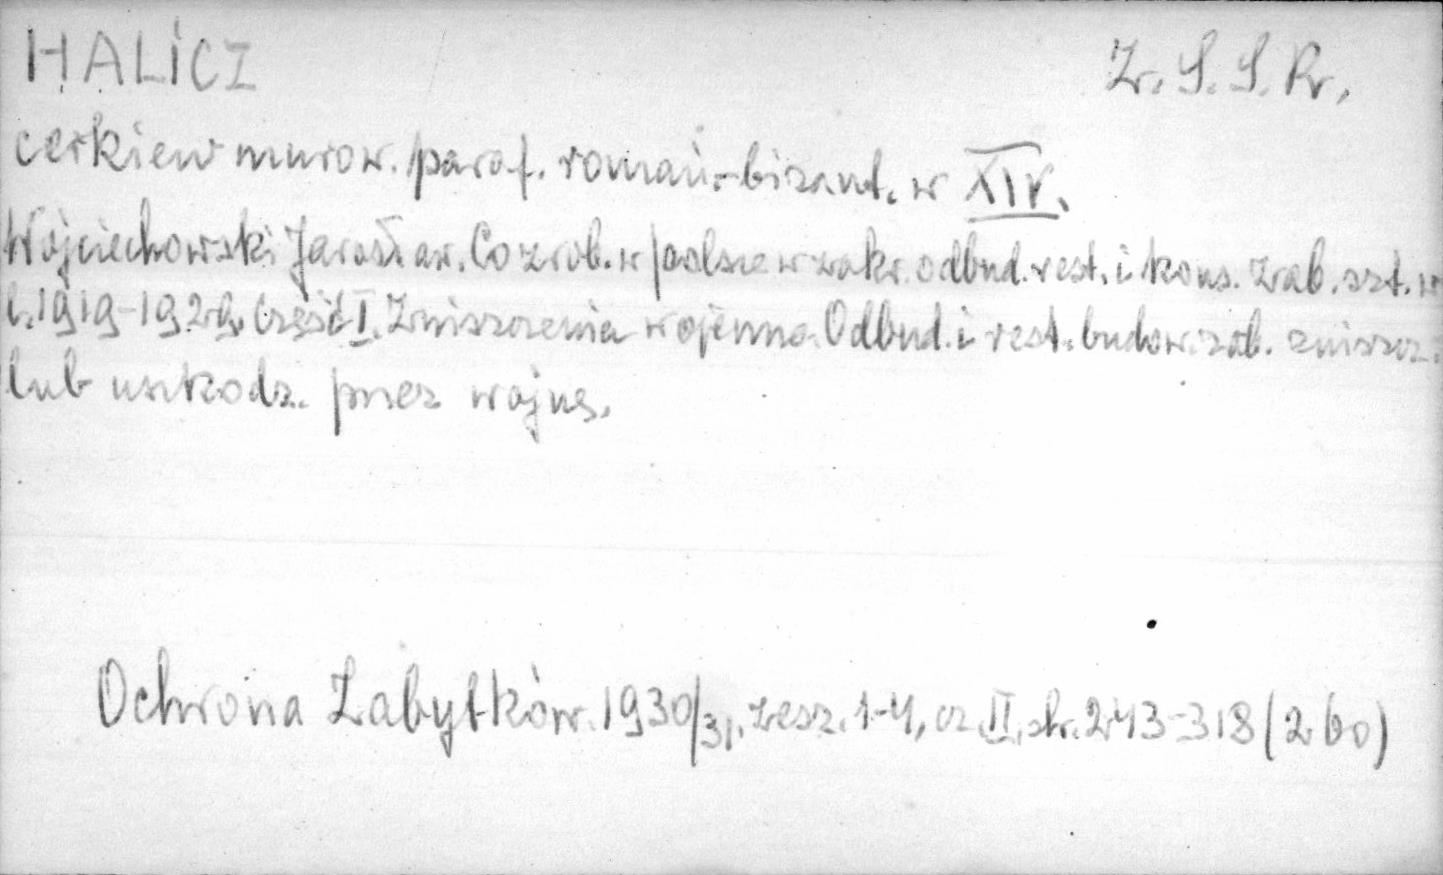 HALICZ Z.S.S.R.
cerkiew murow. paraf. romań.-bizant. w XIV.
Wojciechowski Jarosław. Co zrob. w Polsce w zakr. odbud. rest. i kons. zab. szt. w
l. 1919-1929. Część I. Zniszczenia wojenne. Odbud. i rest. budow. zab. zniszcz.
lub uszkodz. przez wojnę.
Ochrona Zabytków. 1930/31. zesz. 1-4, cz. II. str. 243-318 (260)